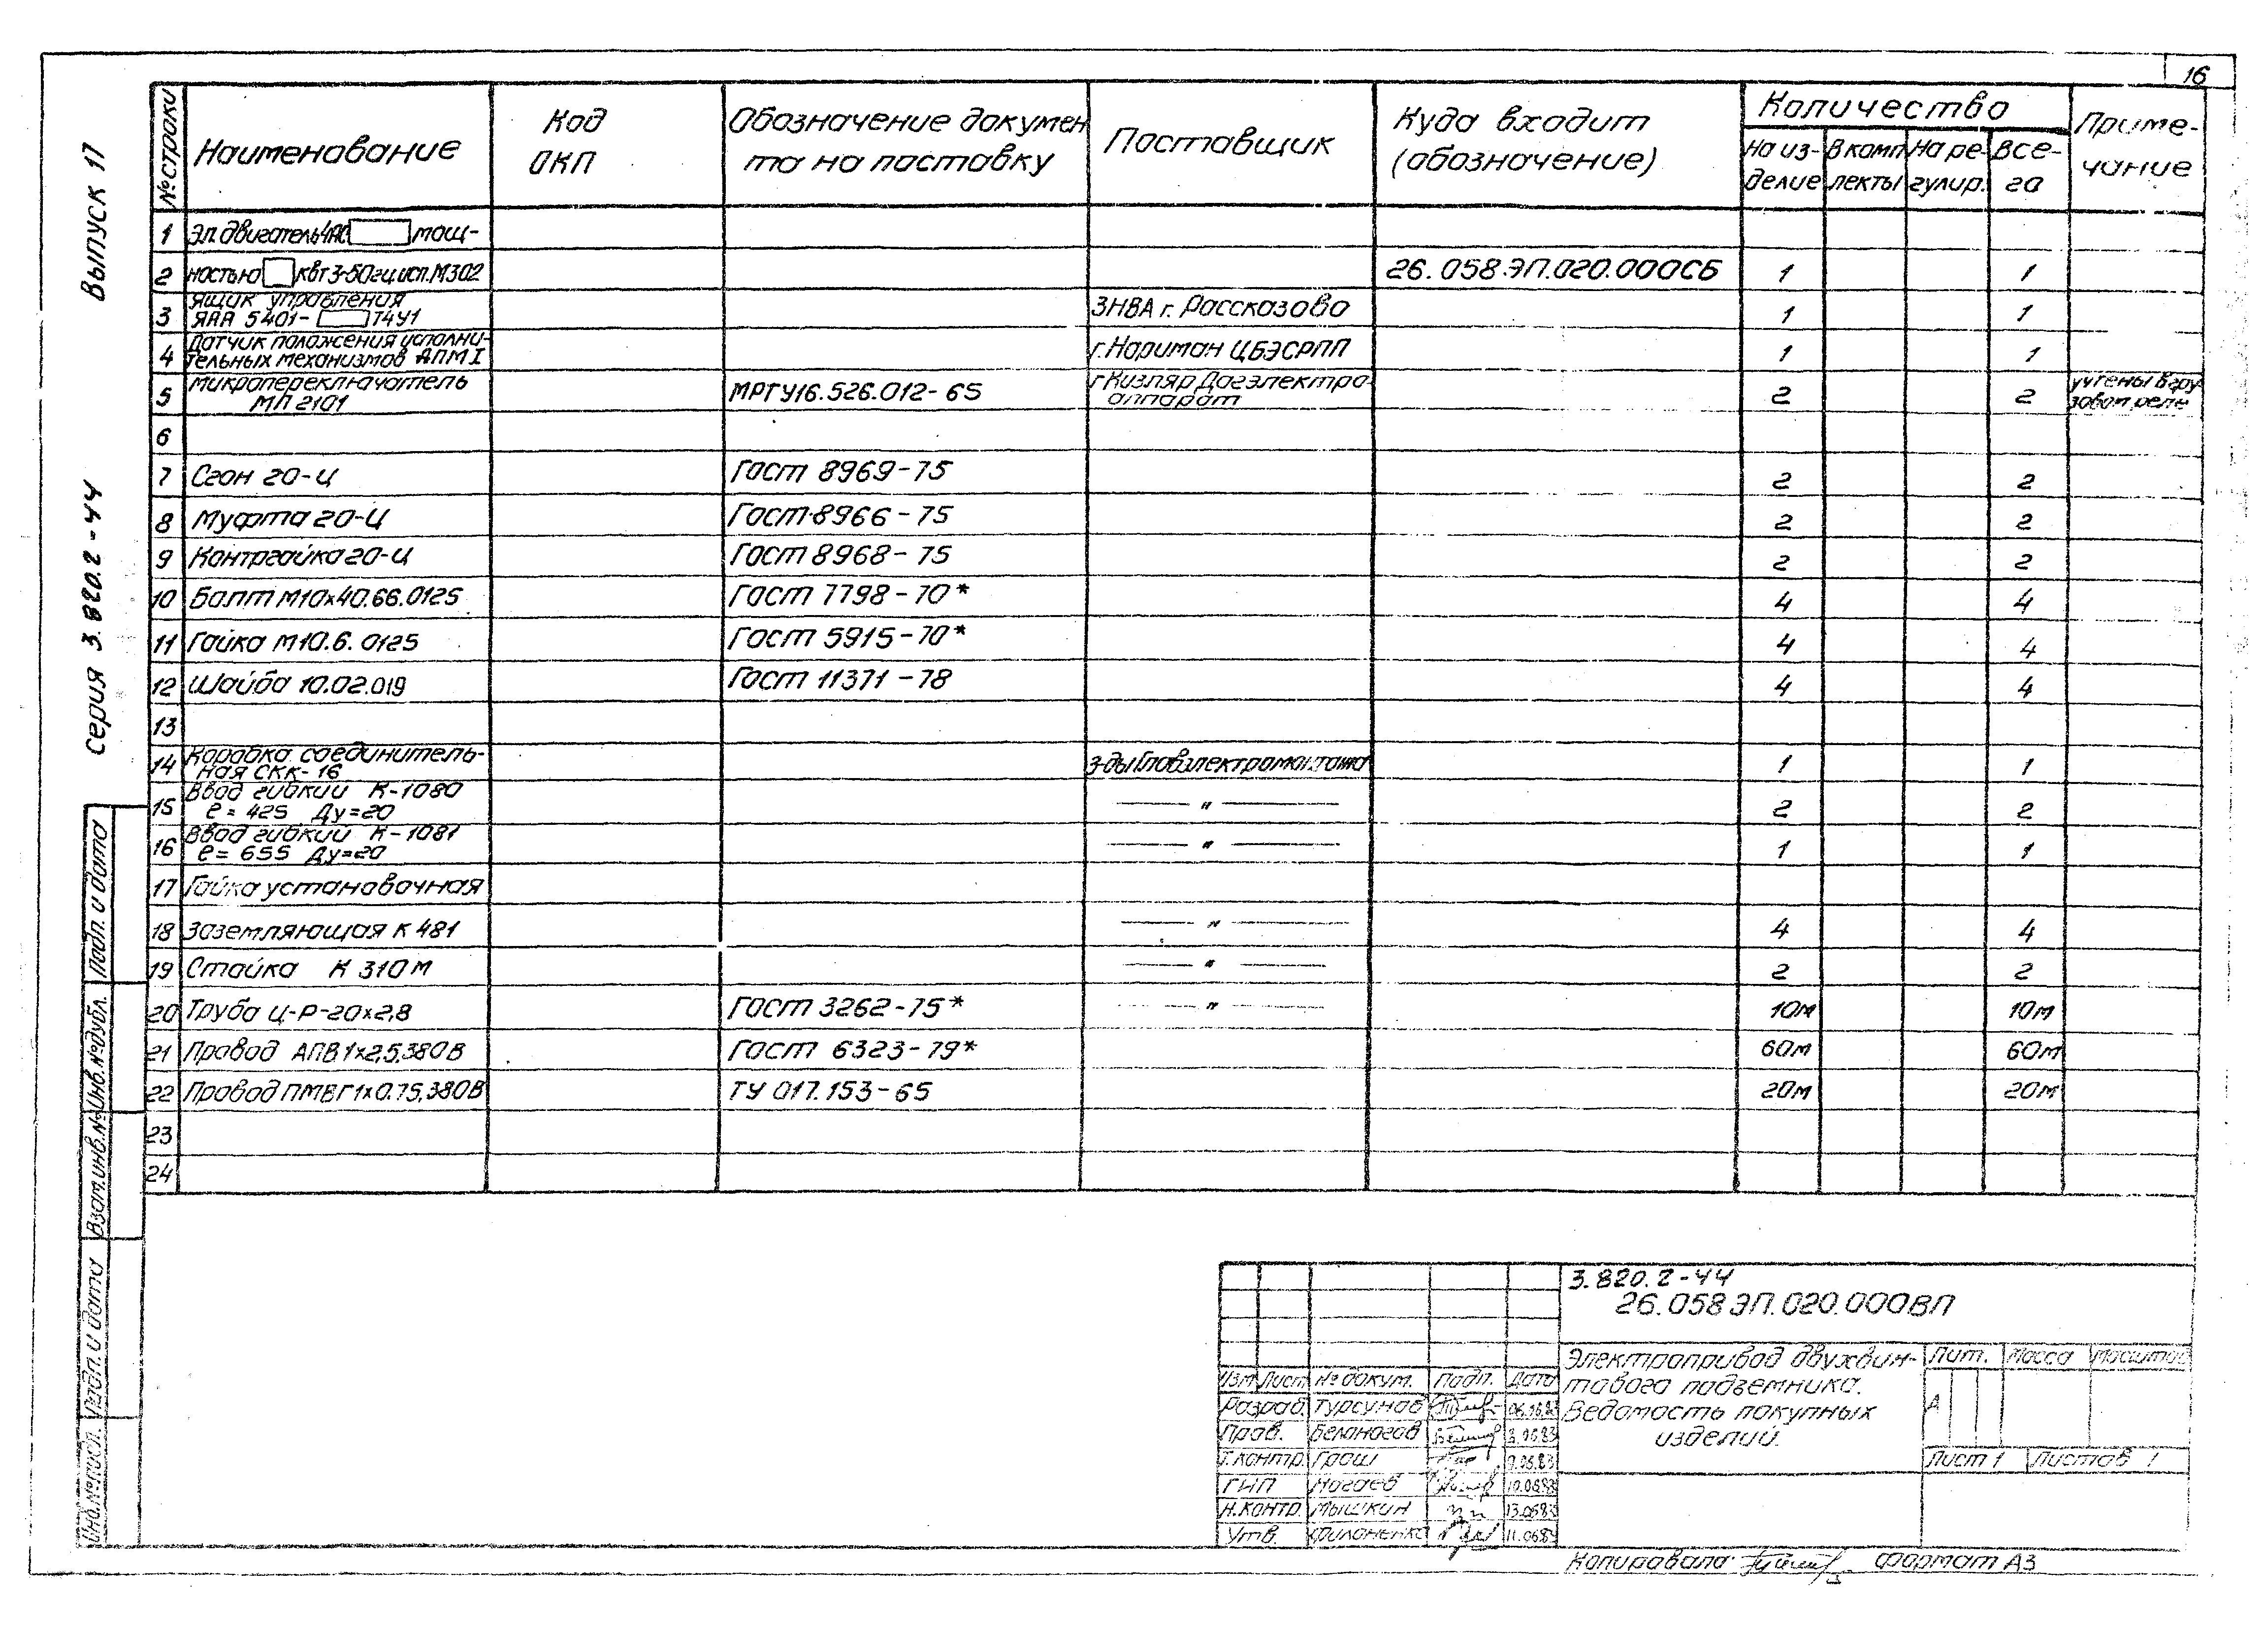 16
Выпуск 17
Серия 3.820.2-44
№ строки
Наименование
Код ОКП
Обозначение докумен
та на поставку
Поставщик
Куда входит
(обозначение)
Количество
На из-
делие
В комп
лекты
На ре-
гулир.
Все-
го
Приме-
чание
1 Эл. двигатель 4АС мощ-
2 ностью квт 3-50гц исп. М302 26.058.ЭП.020.000СБ 1 1
3 Ящик управления
ЯАА 5401- Т4У1 ЗНВА г. Рассказово 1 1
4 Датчик положения исполни-
тельных механизмов ДПМ I г. Нариман ЦБЭСРПП 1 1
5 Микропереключатель
МП 2101 МРТУ16.526.012-65 г Кизляр Дагэлектро-
аппарат 2 2 учтены в гру-
зовом реле
6
7 Сгон 20-Ц Гост 8969-75 2 2
8 Муфта 20-Ц Гост 8966-75 2 2
9 Контргайка 20-Ц Гост 8968-75 2 2
10 Болт М10х40.66.0125 Гост 7798-70* 4 4
11 Гайка М10.6.0125 Гост 5915-70* 4 4
12 Шайба 10.02.019 Гост 11371-78 4 4
13
14 Коробка соединитель-
ная СКК-16 з-ды Главэлектромонтажа 1 1
15 Ввод гибкий К-1080
ℓ= 425 Ду=20 —— " —— 2 2
16 Ввод гибкий К-1081
ℓ= 655 Ду=20 —— " —— 1 1
17 Гайка установочная
18 Заземляющая К 481 —— " —— 4 4
19 Стойка К 310М —— " —— 2 2
20 Труба Ц-Р-20х2,8 Гост 3262-75* —— " —— 10м 10м
21 Провод АПВ1х2,5,380В Гост 6323-79* 60м 60м
22 Провод ПМВГ1х0.75,380В ТУ 017.153-65 20м 20м
23
24
Подп. и дата
Инв.№дубл.
Взам.инв.№
Подп. и дата
Инв.№подл.
3.820.2-44
26.058ЭП.020.000ВП
Изм Лист № докум. Подп. Дата
Разраб. Турсунов
Пров. Белоногов
Т.контр. Грош 9.06.83
ГИП Ногаев 10.06.83
Н.контр. Мышкин 13.06.83
Утв. Филоненко
Электропривод двухвин-
тового подъемника.
Ведомость покупных
изделий.
Лит. Масса Масштаб
А
Лист 1 Листов 1
Копировала: Формат А3